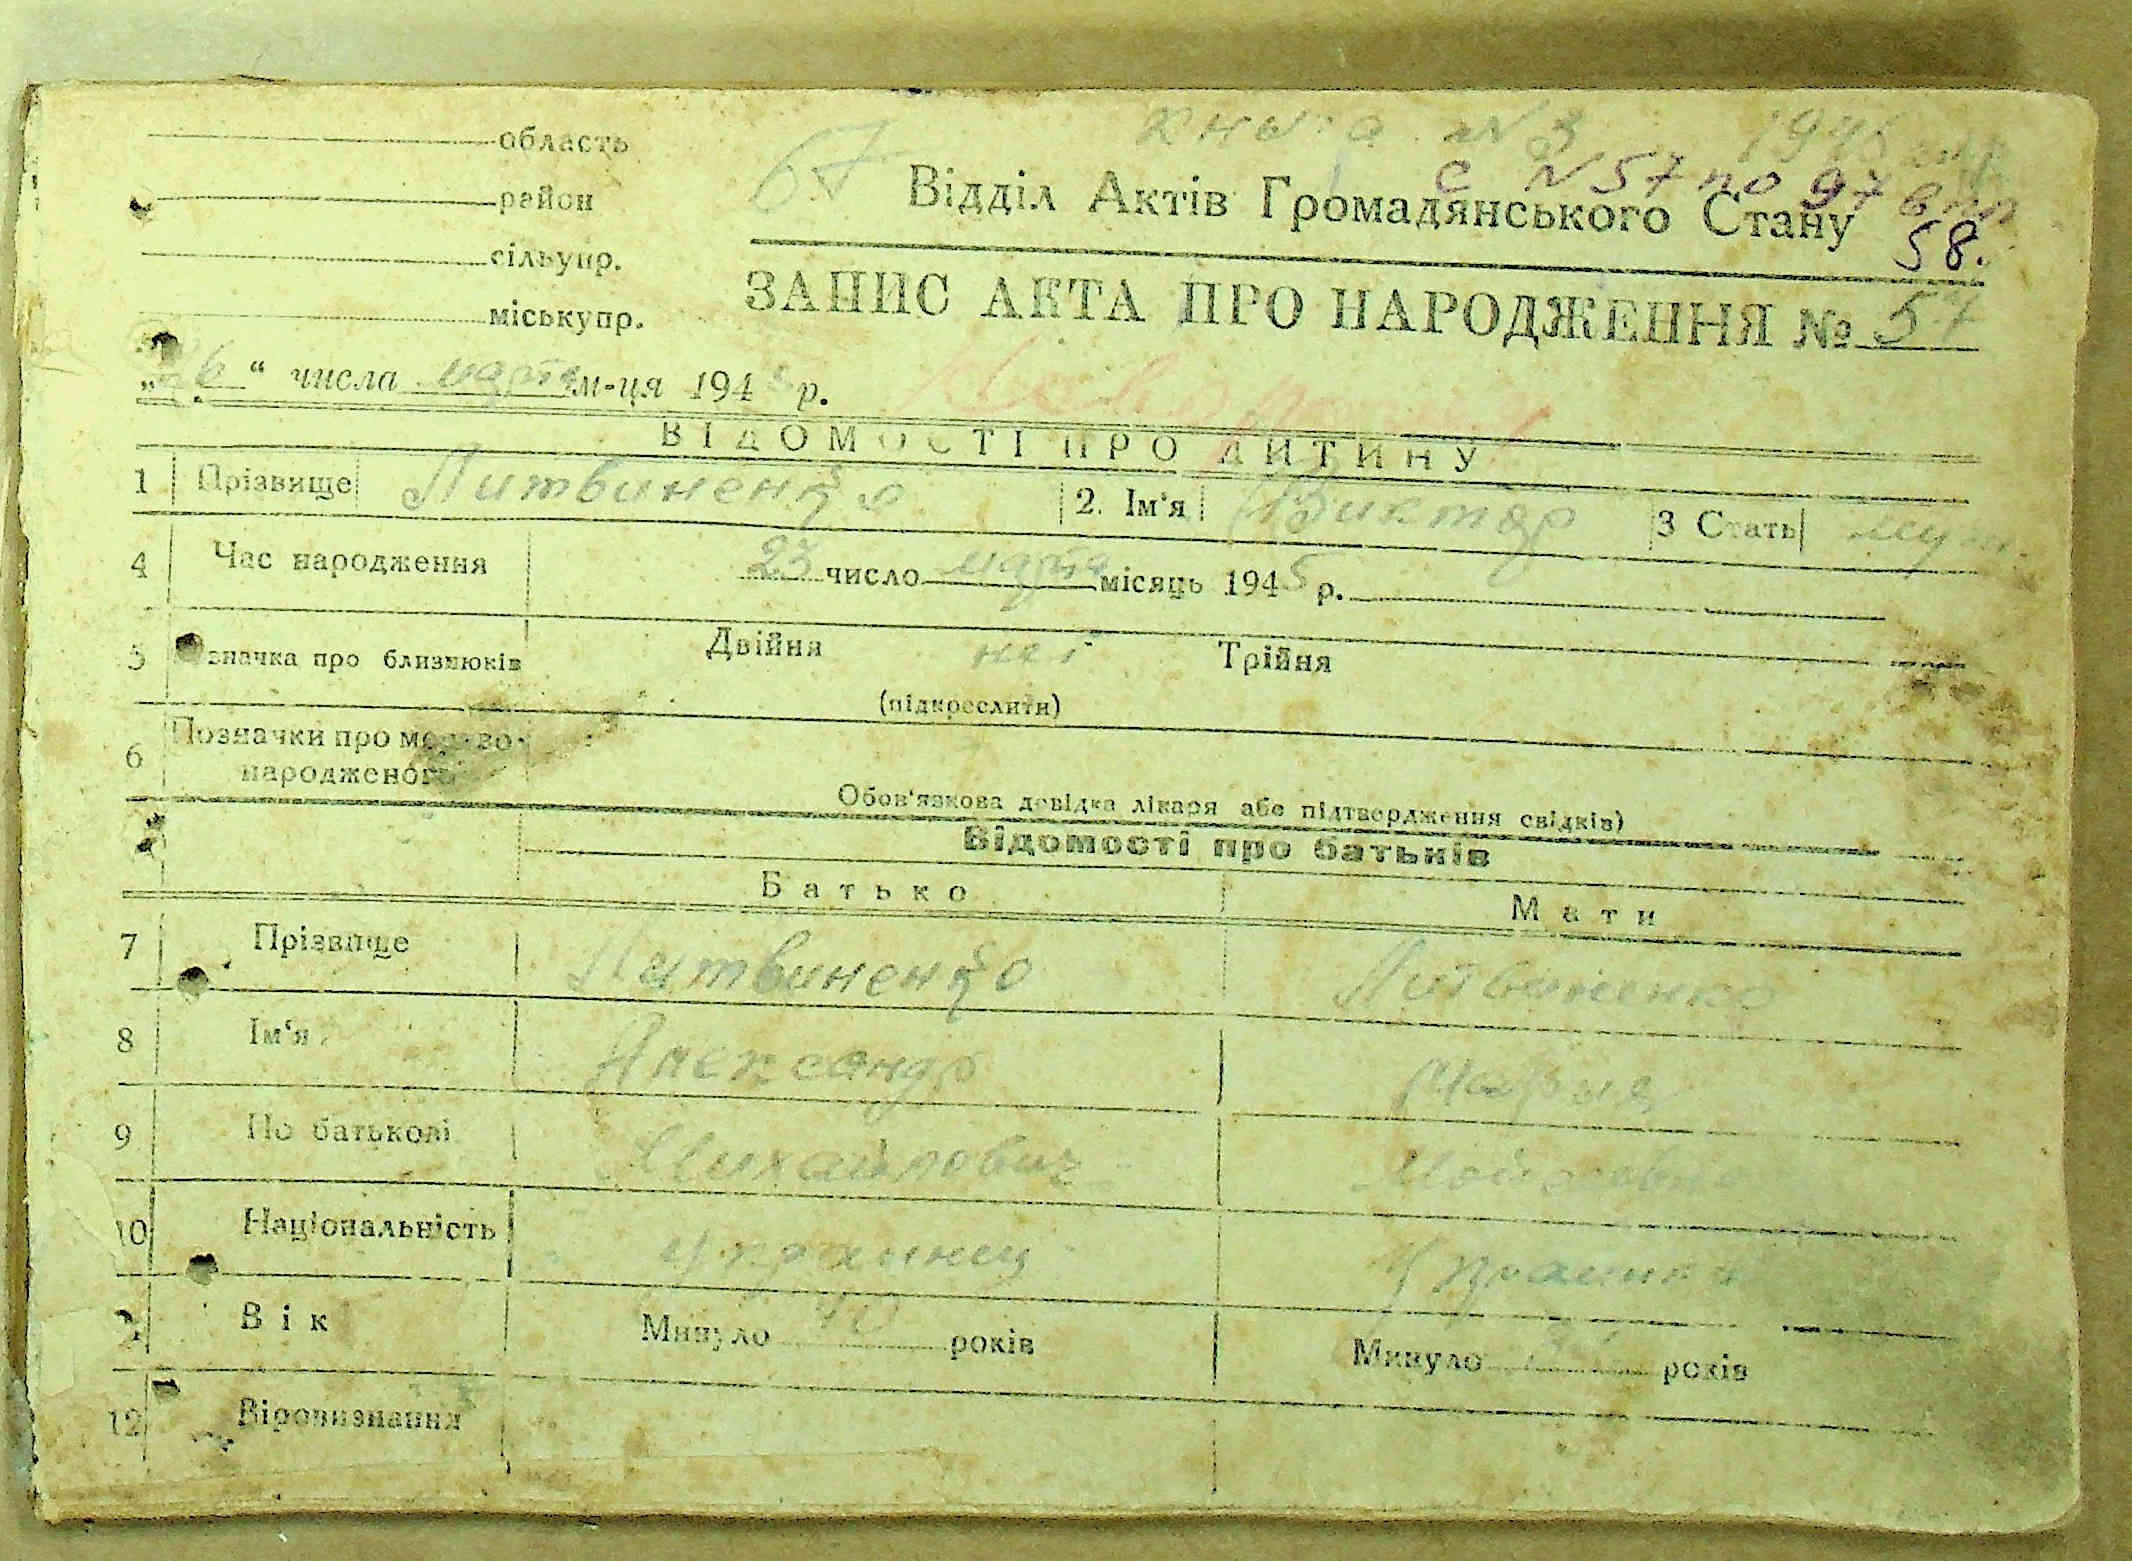 область
67
книга №3 1945
район
Відділ Актів Громадянського Стану
с №57 по 97 вкл
58.
сільупр.
ЗАПИС АКТА ПРО НАРОДЖЕННЯ № 57
міськупр.
„26“ числа марта м-ця 1945 р.
ВІДОМОСТІ ПРО ДИТИНУ
1 Прізвище Литвиненко 2. Ім'я Виктор 3 Стать муж.
4 Час народження 23 число марта місяць 1945 р.
5 значка про близнюків Двійня нет Трійня
(підкреслити)
6 Позначки про мертво-
народженого
Обов'язкова довідка лікаря або підтвердження свідків)
Відомості про батьків
Батько Мати
7 Прізвище Литвиненко Литвиненко
8 Ім'я Александр Мария
9 По батькові Михайлович
10 Національність Украинец Украинка
Вік Минуло 40 років Минуло років
12 Віровизнання